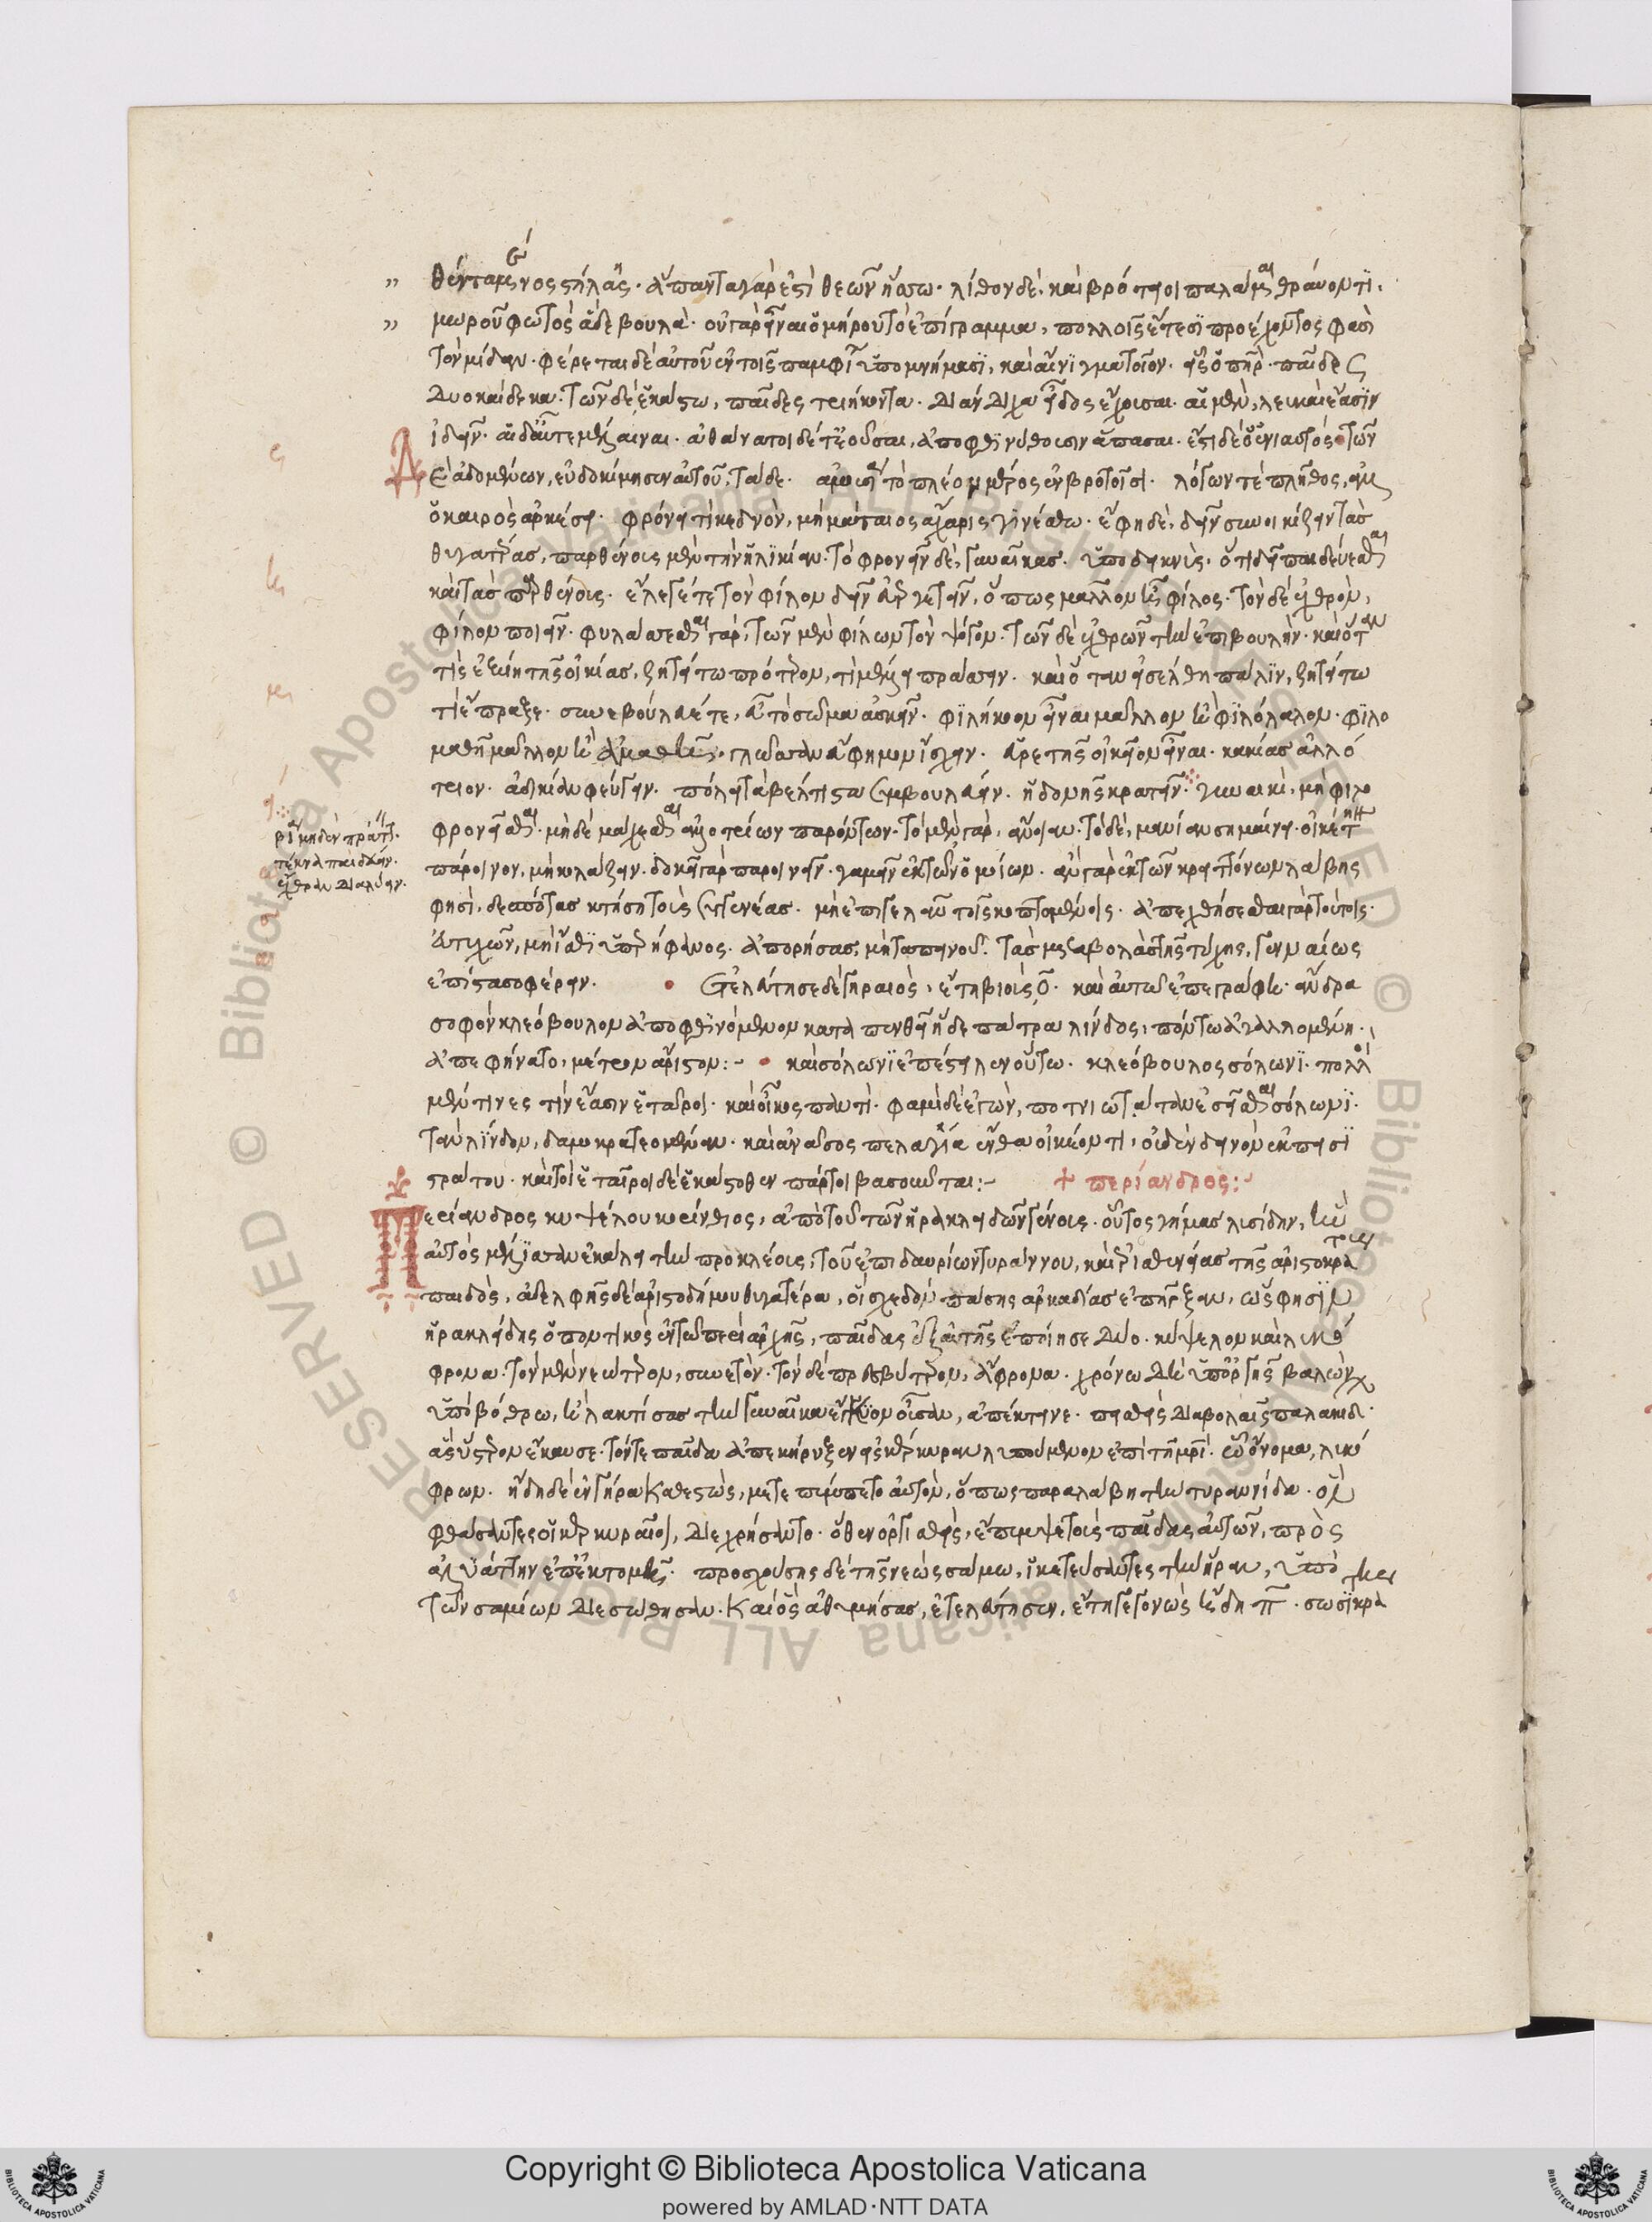 θέντα μένος στήλας. ἅπαντα γάρ ἐστι θεῶν ἥσσω. λίθον δὲ, καὶ βρότειοι παλάμαι θραύοντι.
μωροῦ φωτὸς ἅδε βουλά. οὐ γὰρ εἶναι ὁμήρου τὸ ἐπίγραμμα, πολλοῖς ἔτεσι προέχοντος φασὶ
τοῦ μίδου. φέρεται δὲ αὐτοῦ ἐν τοῖς παμφί ὑπομνήμασι, καὶ αἴνιγμα τοῖον. εἷς ὁ πηρ. παῖδες
δυοκαίδεκα. τῶν δὲ ἑκάστω, παῖδες τριήκοντα. διάνδιχα εἶδος ἔχουσαι. αἱ μὲν, λευκαὶ ἔασιν
ἰδεῖν. αἱ δ' αὖτε μέλαιναι. ἀθάνατοι δέ τε οὖσαι, ἀποφθινύθουσιν ἅπασαι. ἔστι δὲ ὁ ἐνιαυτός. τῶν
δὲ ἀδομένων, εὐδοκίμησεν αὐτοῦ, τάδε. ἀμουσία τὸ πλέον μέρος ἐν βροτοῖσι. λόγων τε πλῆθος, ἀλλ
ὁ καιρὸς ἀρκέσει. φρόνει τὶ κεδνὸν, μὴ μάταιος ἄχαρις γινέσθω. ἔφη δὲ, δεῖν συνοικίζειν τὰς
θυγατέρας, παρθένους μὲν τὴν ἡλικίαν. τὸ φρονεῖν δὲ, γυναῖκας. ὑποδεικνὺς. ὅτι δεῖ παιδεύεσθαι
καὶ τὰς παρθένους. ἔλεγέ τε τὸν φίλον δεῖν εὐεργετεῖν, ὅπως μᾶλλον ᾖ φίλος. τὸν δὲ ἐχθρὸν,
φίλον ποιεῖν. φυλάσσεσθαι γὰρ, τῶν μὲν φίλων τὸν ψόγον. τῶν δὲ ἐχθρῶν τὴν ἐπιβουλήν. καὶ ὅταν
τὶς ἐξίη τῆς οἰκίας, ζητείτω πρότερον, τί μέλλει πράσσειν. καὶ ὅταν εἰσέλθη πάλιν, ζητείτω
τί ἔπραξε. συνεβούλευέ τε, εὖ τὸ σῶμα ἀσκεῖν. φιλήκοον εἶναι μᾶλλον ἢ φιλόλαλον. φιλο
μαθῆ μᾶλλον ἢ ἀμαθῆ. γλῶσσαν εὔφημον ἴσχειν. ἀρετῆς οἰκεῖον εἶναι. κακίας ἀλλό
τριον. ἀδικίαν φεύγειν. πόλει τὰ βέλτιστα συμβουλεύειν. ἡδονῆς κρατεῖν. γυναικὶ, μὴ φιλο
φρονεῖσθαι. μὴ δὲ μάχεσθαι ἀλλοτρίων παρόντων. τὸ μὲν γὰρ, ἄνοιαν. τὸ δὲ, μανίαν σημαίνει. οἰκέτην
πάροινον, μὴ κολάζειν. δοκεῖ γὰρ παροινεῖν. γαμεῖν ἐκ τῶν ὁμοίων. ἂν γὰρ ἐκ τῶν κρειττόνων λάβης
φησὶ, δεσπότας κτήση τοὺς συγγενέας. μὴ ἐπιγελᾶν τοῖς σκοπτομένοις. ἀπεχθήσεσθαι γὰρ τούτοις.
εὐτυχῶν, μὴ ἴσθι ὑπερήφανος. ἀπορήσας, μὴ ταπεινοῦ. τὰς μεταβολὰς τῆς τύχης, γενναίως
ἐπίστασο φέρειν. ἐτελεύτησε δὲ γηραιὸς, ἔτη βιοὺς ο. καὶ αὐτῶ ἐπεγράφη. ἄνδρα
σοφὸν κλεόβουλον ἀποφθινόμενον καταπενθεῖ ἥδε πάτρα λίνδος, πόντω ἀγαλλομένη.
ἀπεφήνατο, μέτρον ἄριστον:- καὶ σόλωνι ἐπέστειλεν οὕτω. κλεόβουλος σόλωνι. πολλοί
μέν τινες τὶν ἔασιν ἕταροι. καὶ οἶκος παντὶ. φαμὶ δὲ ἐγὼν, ποτνιωτάταν ἐσεῖσθαι σόλωνι.
τὰν λίνδον, δαμοκρατεομέναν. καὶ ἁ νᾶσος πελαγία ἔνθα οἰκέοντι, οὐδὲν δεινὸν ἐκ πεισι
στράτου. καὶ τοὶ ἑταῖροι δὲ ἑκάστοθεν πάρ τοι βασοῦνται:- + περίανδρος:-
Περίανδρος κυψέλου κορίνθιος, ἀπὸ τοῦ τῶν ἡρακλειδῶν γένους. οὗτος γήμας λισίδην, ἣν
αὐτὸς μέλισσαν ἐκάλει τὴν προκλέους, τοῦ ἐπιδαυρίων τυράννου, καὶ ἐρισθενείας τῆς ἀριστοκράτους
παιδὸς, ἀδελφῆς δὲ ἀριστοδήμου θυγατέρα, οἳ σχεδὸν πάσης ἀρκαδίας ἐπῆρξαν, ὥς φησιν
ἡρακλείδης ὁ ποντικὸς ἐν τῶ περὶ ἀρχῆς, παῖδας ἐξ αὐτῆς ἐποίησε δύο. κύψελον καὶ λυκό
φρονα. τὸν μὲν νεώτερον, συνετόν. τὸν δὲ πρεσβύτερον, ἄφρονα. χρόνω δὴ ὑπ' ὀργῆς βαλὼν
ὑποβόθρω, ἢ λακτίσας τὴν γυναῖκα ἔγκυον οὖσαν, ἀπέκτεινε. πεισθεὶς διαβολαῖς παλακιδ.
ἃς ὕστερον ἔκαυσε. τόν τε παῖδα ἀπεκήρυξεν εἰς κέρκυραν λυπούμενον ἐπὶ τῆ μρί. ὧ ὄνομα, λυκό
φρων. ἤδη δὲ ἐν γήρα καθεστὼς, μετεπέμπετο αὐτὸν, ὅπως παραλάβη τὴν τυραννίδα. ὃν
φθάσαντες οἱ κερκυραῖοι, διεχρήσαντο. ὅθεν ὀργισθεὶς, ἔπεμψε τοὺς παῖδας αὐτῶν, πρὸς
ἀλυάττην ἐπ' ἐκτομῇ. προσχούσης δὲ τῆς νεὼς σάμω, ἱκετεύσαντες τὴν ἥραν, ὑπὸ
τῶν σαμίων διεσώθησαν. καὶ ὃς ἀθυμήσας, ἐτελεύτησεν, ἔτη γεγονὼς ἤδη π. σωσικράτης
βία μηδὲν πράττ.
τέκνα παιδεύειν.
ἔχθραν διαλύειν.
Copyright © Biblioteca Apostolica Vaticana
powered by AMLAD·NTT DATA